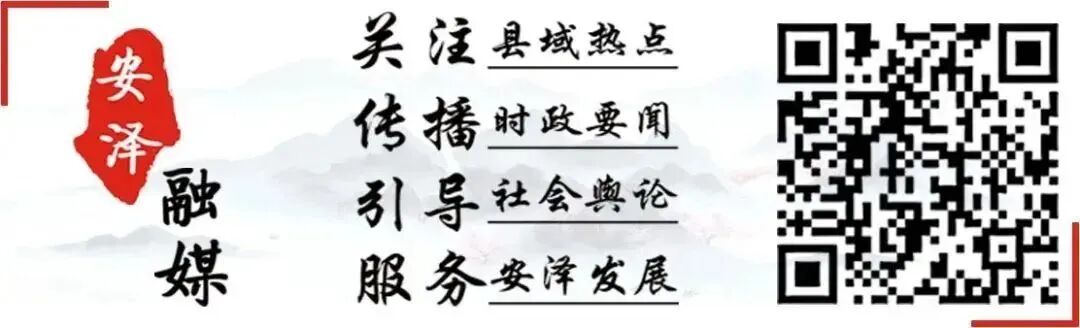 安泽
融媒
关注县域热点
传播时政要闻
引导社会舆论
服务安泽发展